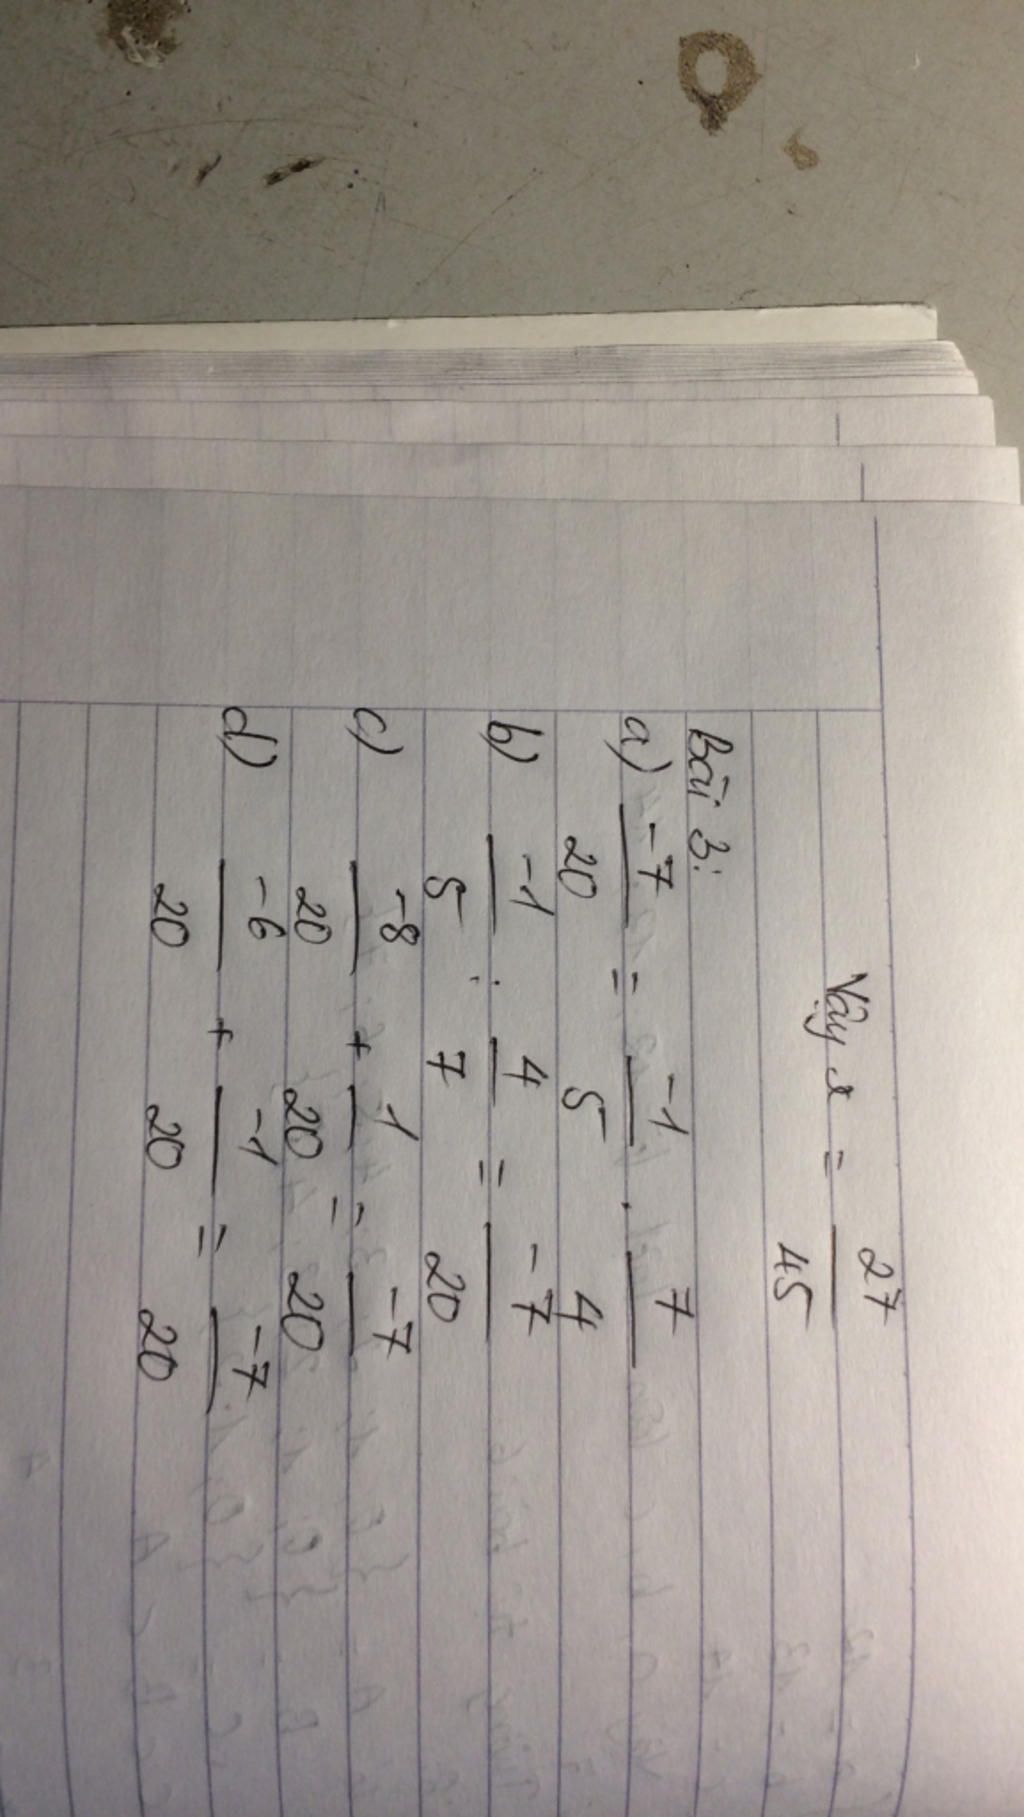 Vậy x = 27/45
Bài 3:
a) -7/20 = -1/5 . 7/4
b) -1/5 : 4/7 = -7/20
c) -8/20 + 1/20 = -7/20
d) -6/20 + -1/20 = -7/20